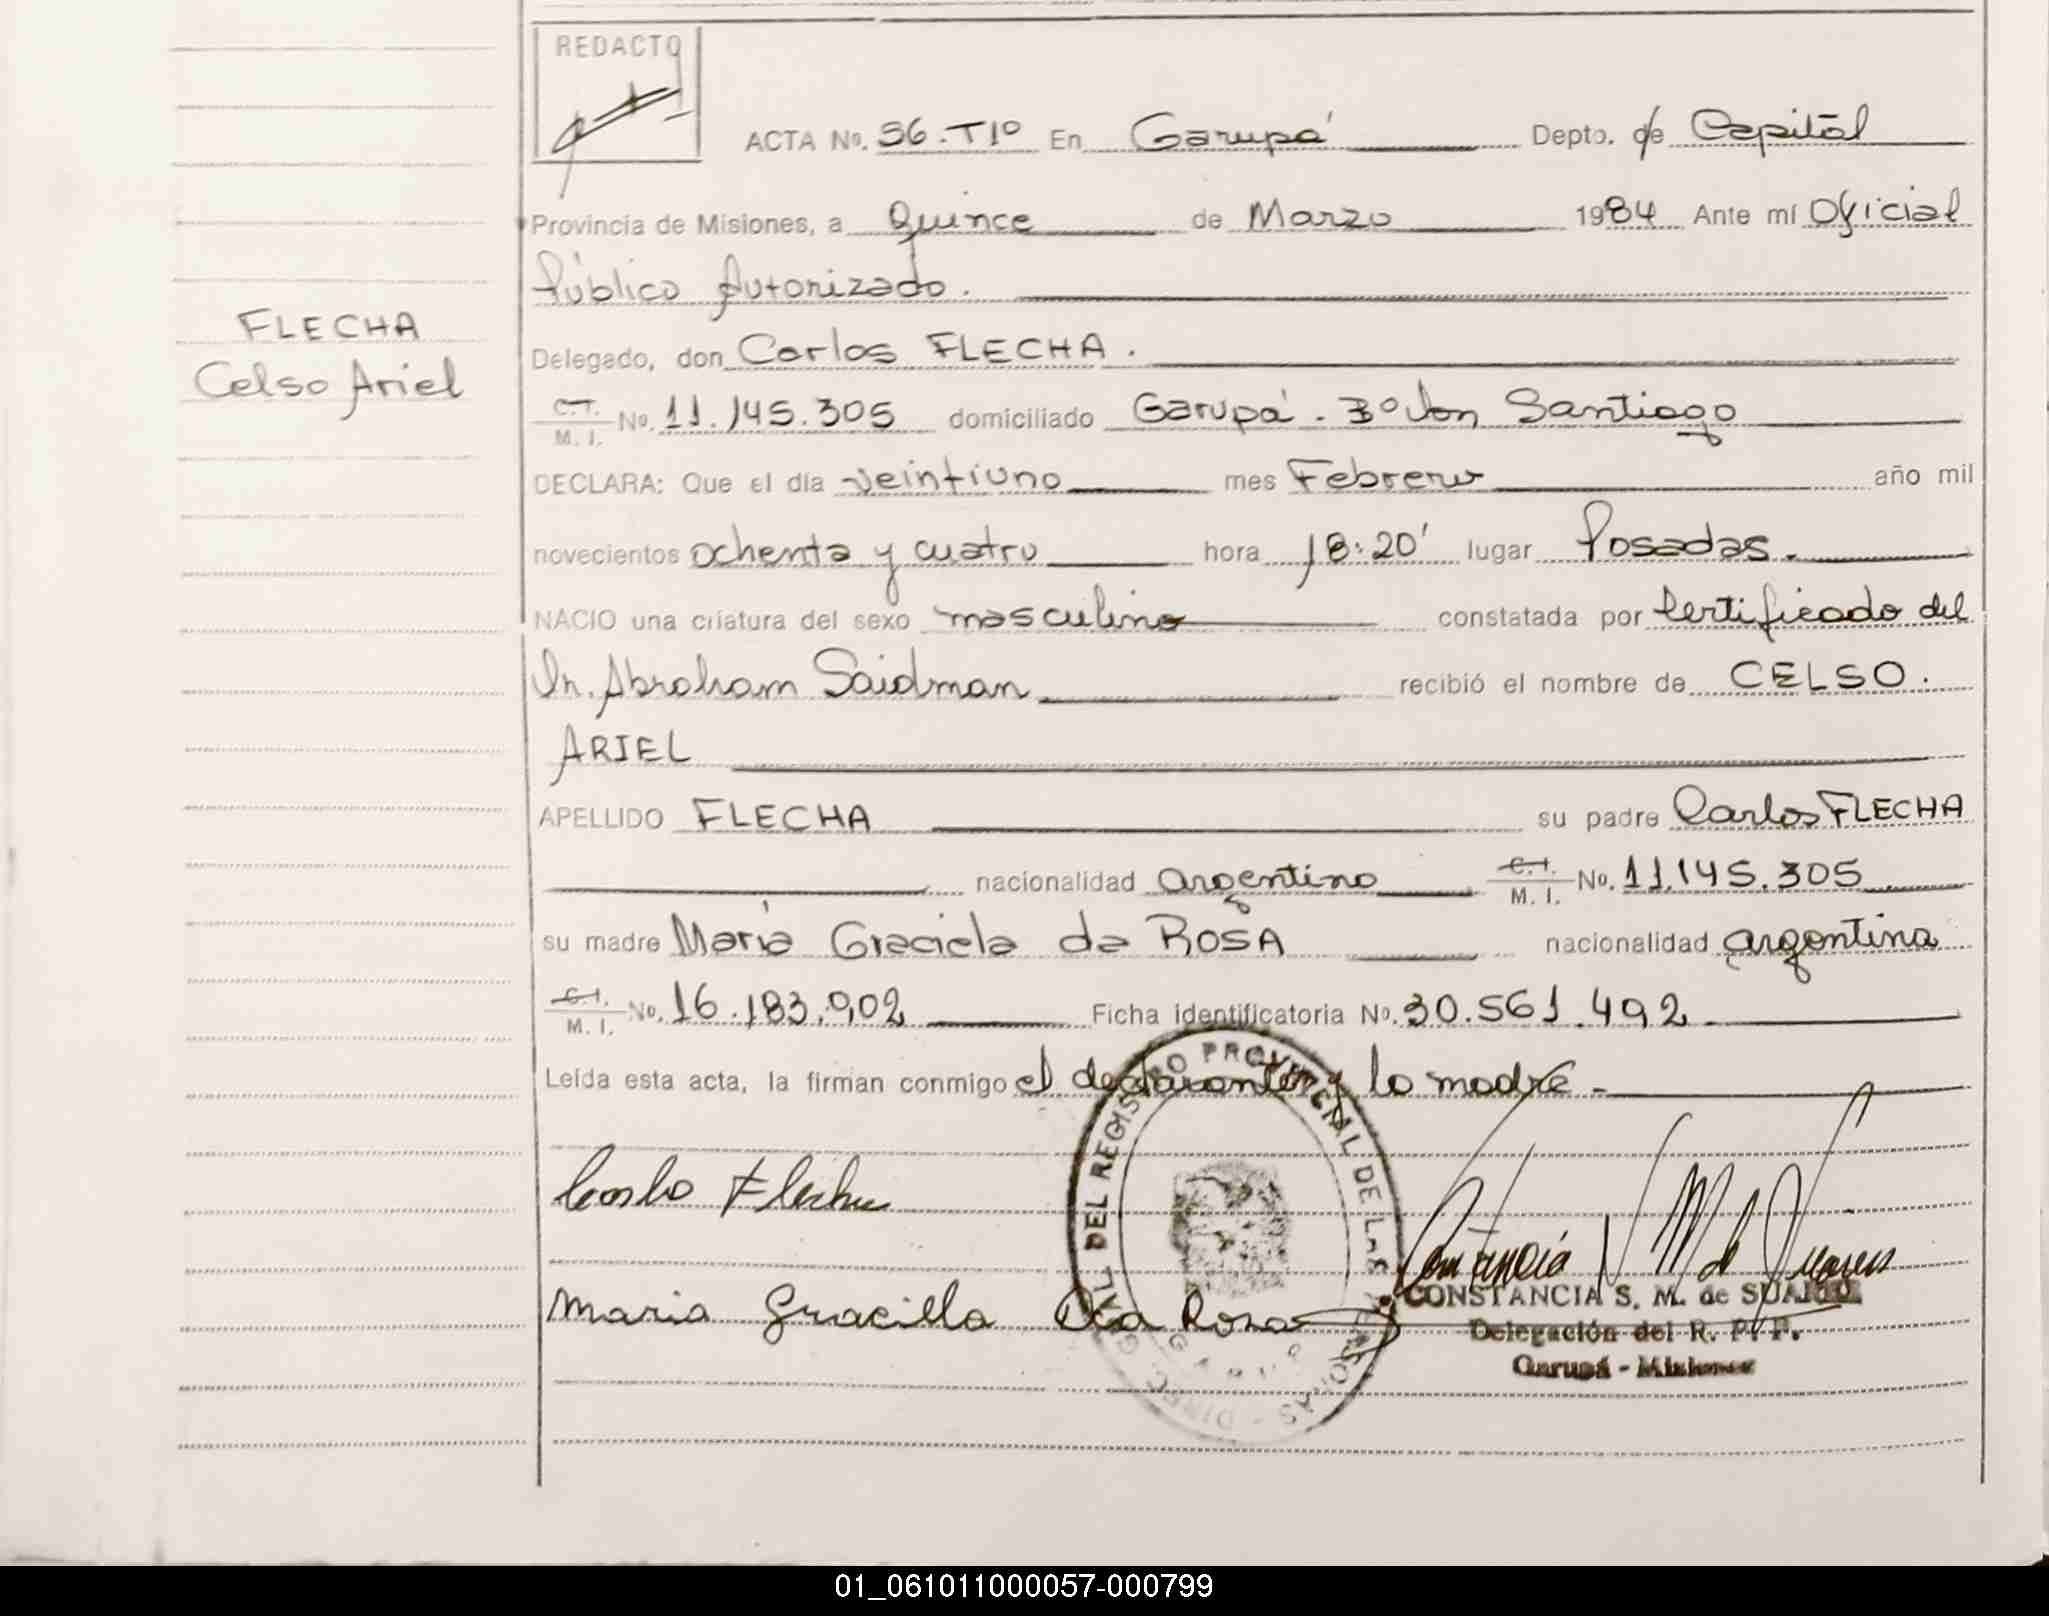 REDACTO
ACTA No. 56.T1º En Garupá Depto. de Capital
Provincia de Misiones, a Quince de Marzo 1984 Ante mí Oficial
Público Autorizado.
FLECHA
Celso Ariel
Delegado, don Carlos FLECHA.
C.I. M. I. No. 11.145.305 domiciliado Garupá - Bº Santiago
DECLARA: Que el día veintiuno mes Febrero año mil
novecientos ochenta y cuatro hora 18:20' lugar Posadas.
NACIO una criatura del sexo masculino constatada por Certificado del
Dr. Abraham Saidman recibió el nombre de CELSO.
ARIEL
APELLIDO FLECHA su padre Carlos FLECHA
nacionalidad argentino C.I. M. I. No. 11.145.305
su madre María Graciela da ROSA nacionalidad argentina
C.I. M. I. No. 16.183.902 Ficha identificatoria No. 30.561.492
Leída esta acta, la firman conmigo el declarante y la madre.-
DEL REGISTRO PROVINCIAL DE LAS PERSONAS - DIREC. GRAL.
Flecha
Maria Gracilla Da Rosa
Constancia S M de Suarez
CONSTANCIA S. M. de SUAREZ
Delegación del R. P. P.
Garupá - Misiones
01_061011000057-000799